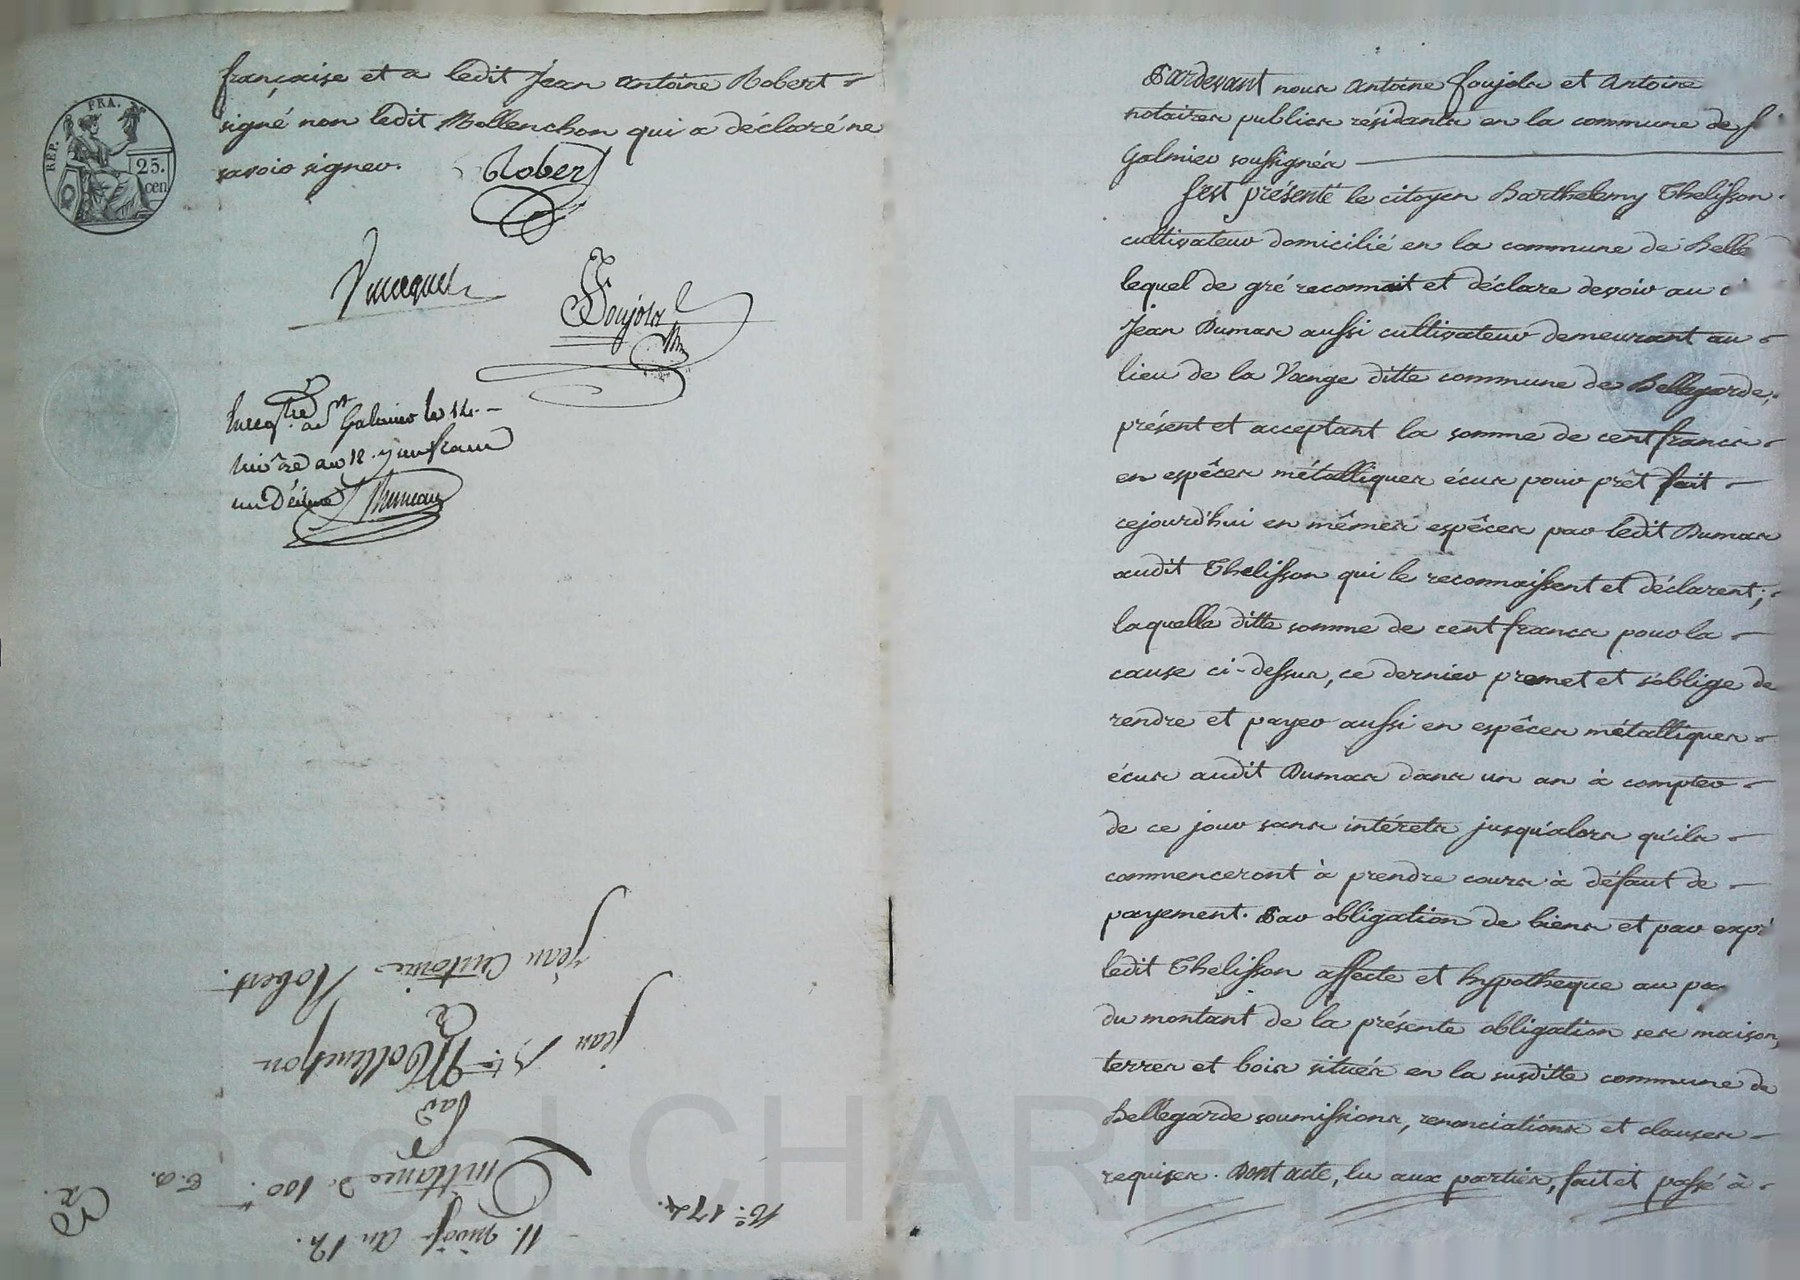 française et a ledit Jean Antoine Robert
signé non ledit Mollenchon qui a déclaré ne
savoir signer. Robert
REP. FRA.
25.
cen
Foujols
Enreg.tré à St Galmier le 14.
niv.ôse an 12. un franc
un Décime
Jean Antoine Robert.
à
Jean B.te Mollenchon
par
Quittance de 100.f
11. nivôse an 12.
N.o 174.
Pardevant nous Antoine Foujols et Antoine
notaires publics résidants en la commune de
Galmier soussignés
S'est présenté le citoyen Barthelemy Thelisson
cultivateur domicilié en la commune de Belle
lequel de gré reconnait et déclare devoir au
Jean Dumas aussi cultivateur demeurant au
lieu de la Vange ditte commune de Bellegarde,
présent et acceptant la somme de cent francs
en espêces métalliques écus pour prêt fait
cejourd'hui en mêmes espêces par ledit Dumas
audit Thelisson qui le reconnaissent et déclarent;
laquelle ditte somme de cent francs pour la
cause ci-dessus, ce dernier promet et s'oblige de
rendre et payer aussi en espêces métalliques
écus audit Dumas dans un an à compter
de ce jour sans intérets jusqu'alors qu'ils
commenceront à prendre cours à défaut de
payement. Par obligation de biens et par exp
ledit Thelisson affecte et hypotheque au pa
du montant de la présente obligation ses maison,
terres et bois situés en la susditte commune de
Bellegarde soumissions, renonciations et clauses
requises. Dont acte, lu aux parties, fait et passé à
Pascal CHAREYRON